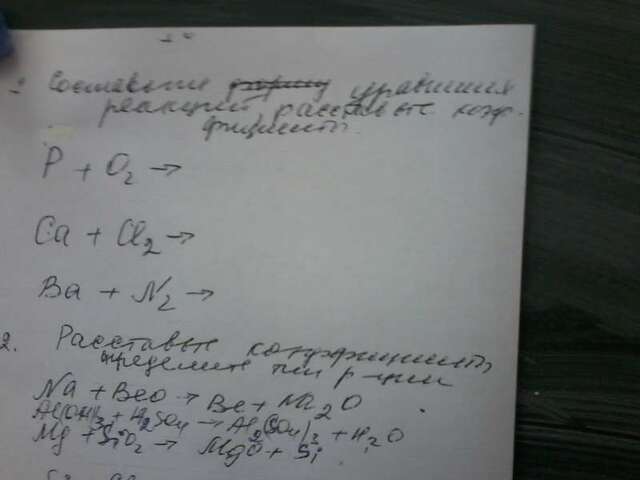 Составьте уравнения
реакций, расставьте коэф-
фициенты.
P + O₂ →
Ca + Cl₂ →
Ba + N₂ →
2. Расставьте коэффициенты
определите тип р-ции
Na + BeO → Be + Na₂O
Al(OH)₃ + H₂SO₄ → Al₂(SO₄)₃ + H₂O
Mg + SiO₂ → MgO + Si